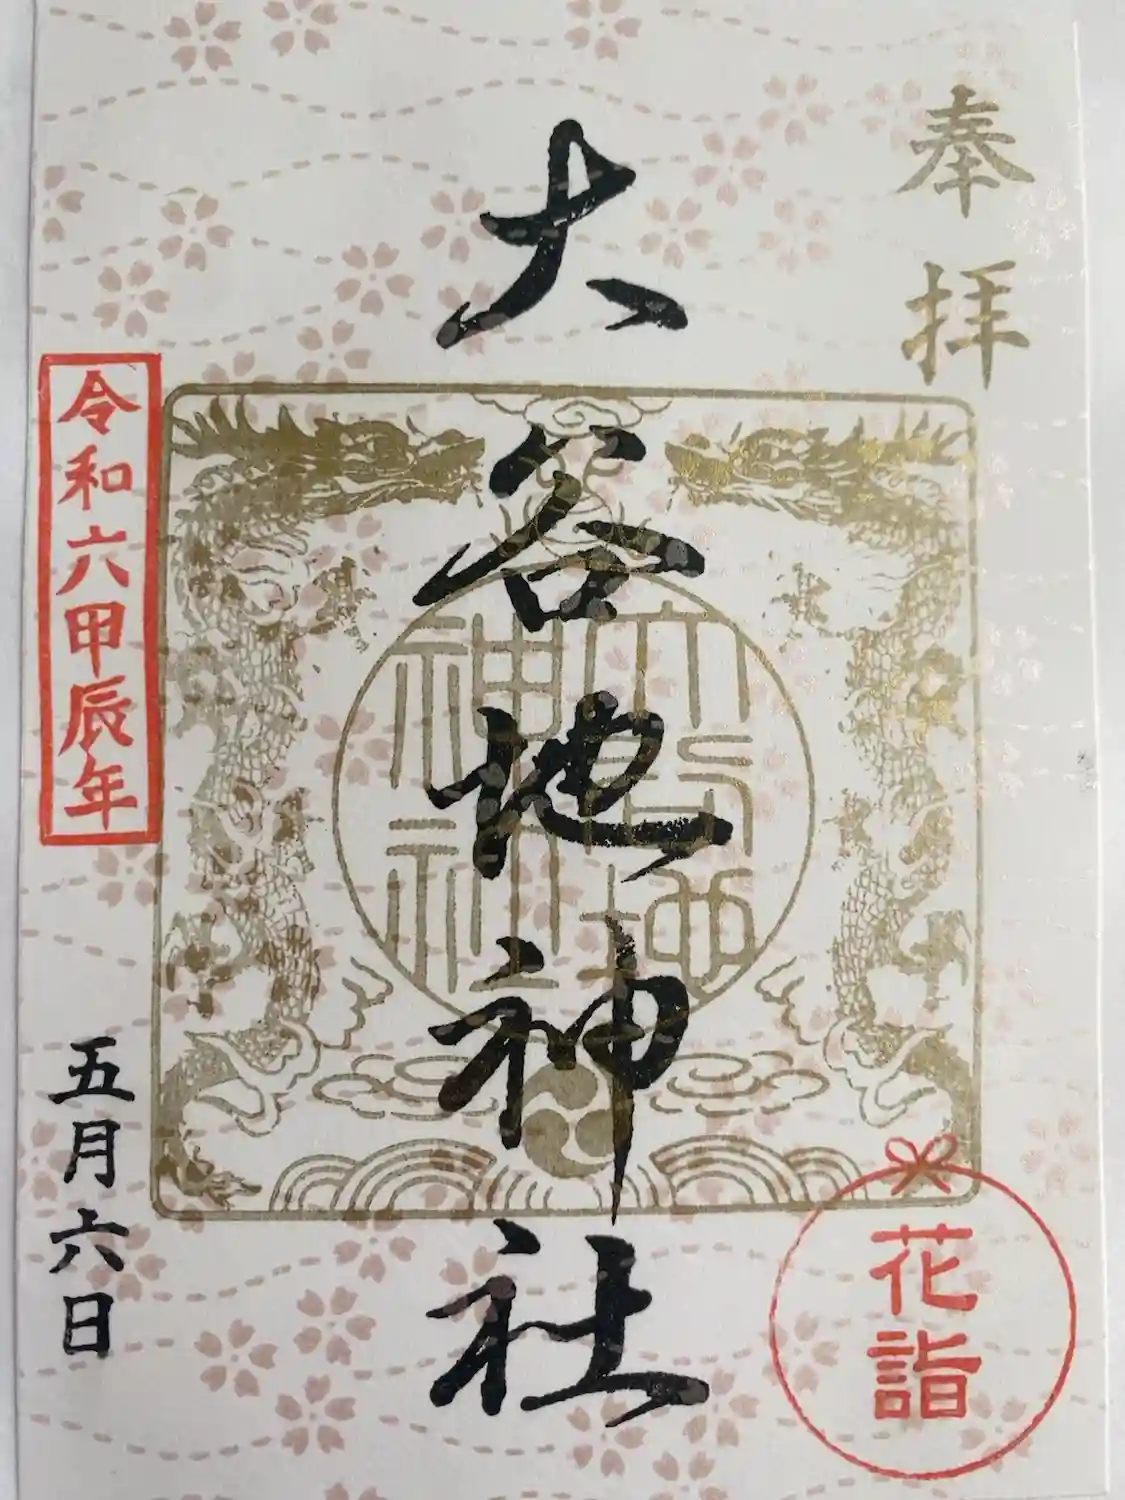 奉拝
大谷地神社
大谷地
神社
花詣
令和六甲辰年
五月六日